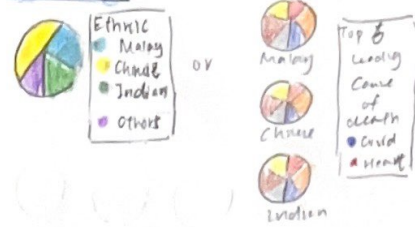 Ethnic
Malay
Chinese
Indian
Others
or
Malay
Chinese
Indian
Top 5
Leading
Cause
of
death
Covid
Heart